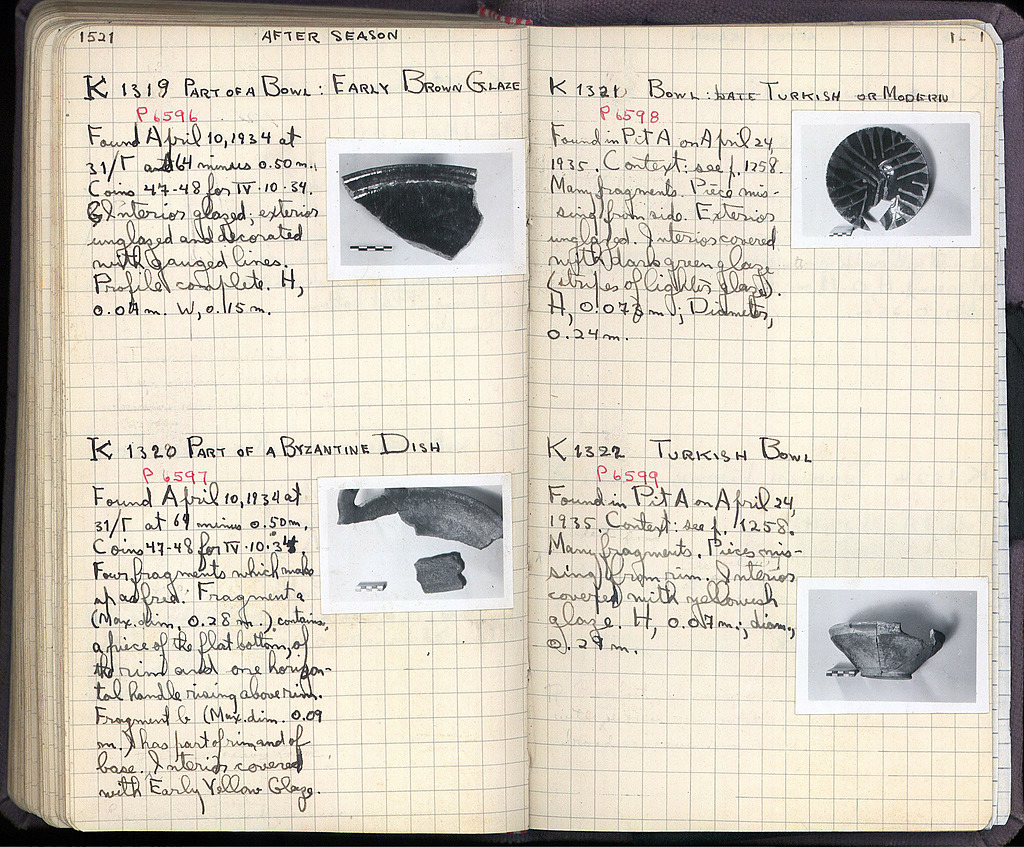 1521 AFTER SEASON
K 1319 PART OF A BOWL : EARLY BROWN GLAZE
P 6596
Found April 10, 1934 at
31/Γ at 64 minus 0.50 m.,
Coins 47-48 for IV·10·34.
Interior glazed; exterior
unglazed and decorated
with gauged lines.
Profile complete. H,
0.07 m. W, 0.15 m.
K 1320 PART OF A BYZANTINE DISH
P 6597
Found April 10, 1934 at
31/Γ at 64 minus 0.50 m.
Coins 47-48 for IV·10·34.
Four fragments which make
up as fred. Fragment a
(Max. dim. 0.28 m.) contains
a piece of the flat bottom, of
the rim and one horizon-
tal handle rising above rim.
Fragment b (Max. dim. 0.09
m.) has part of rim and of
base. Interior covered
with Early Yellow Glaze.
K 1321 BOWL : LATE TURKISH OR MODERN
P 6598
Found in Pit A on April 24,
1935. Context: see p. 1258.
Many fragments. Piece mis-
sing from side. Exterior
unglazed. Interior covered
with dark green glaze
(stripes of lighter glaze).
H, 0.073 m.; Diameter,
0.24 m.
K 1322 TURKISH BOWL
P 6599
Found in Pit A on April 24,
1935. Context: see p. 1258.
Many fragments. Pieces mis-
sing from rim. Interior
covered with yellowish
glaze. H, 0.07 m.; diam.,
0.29 m.